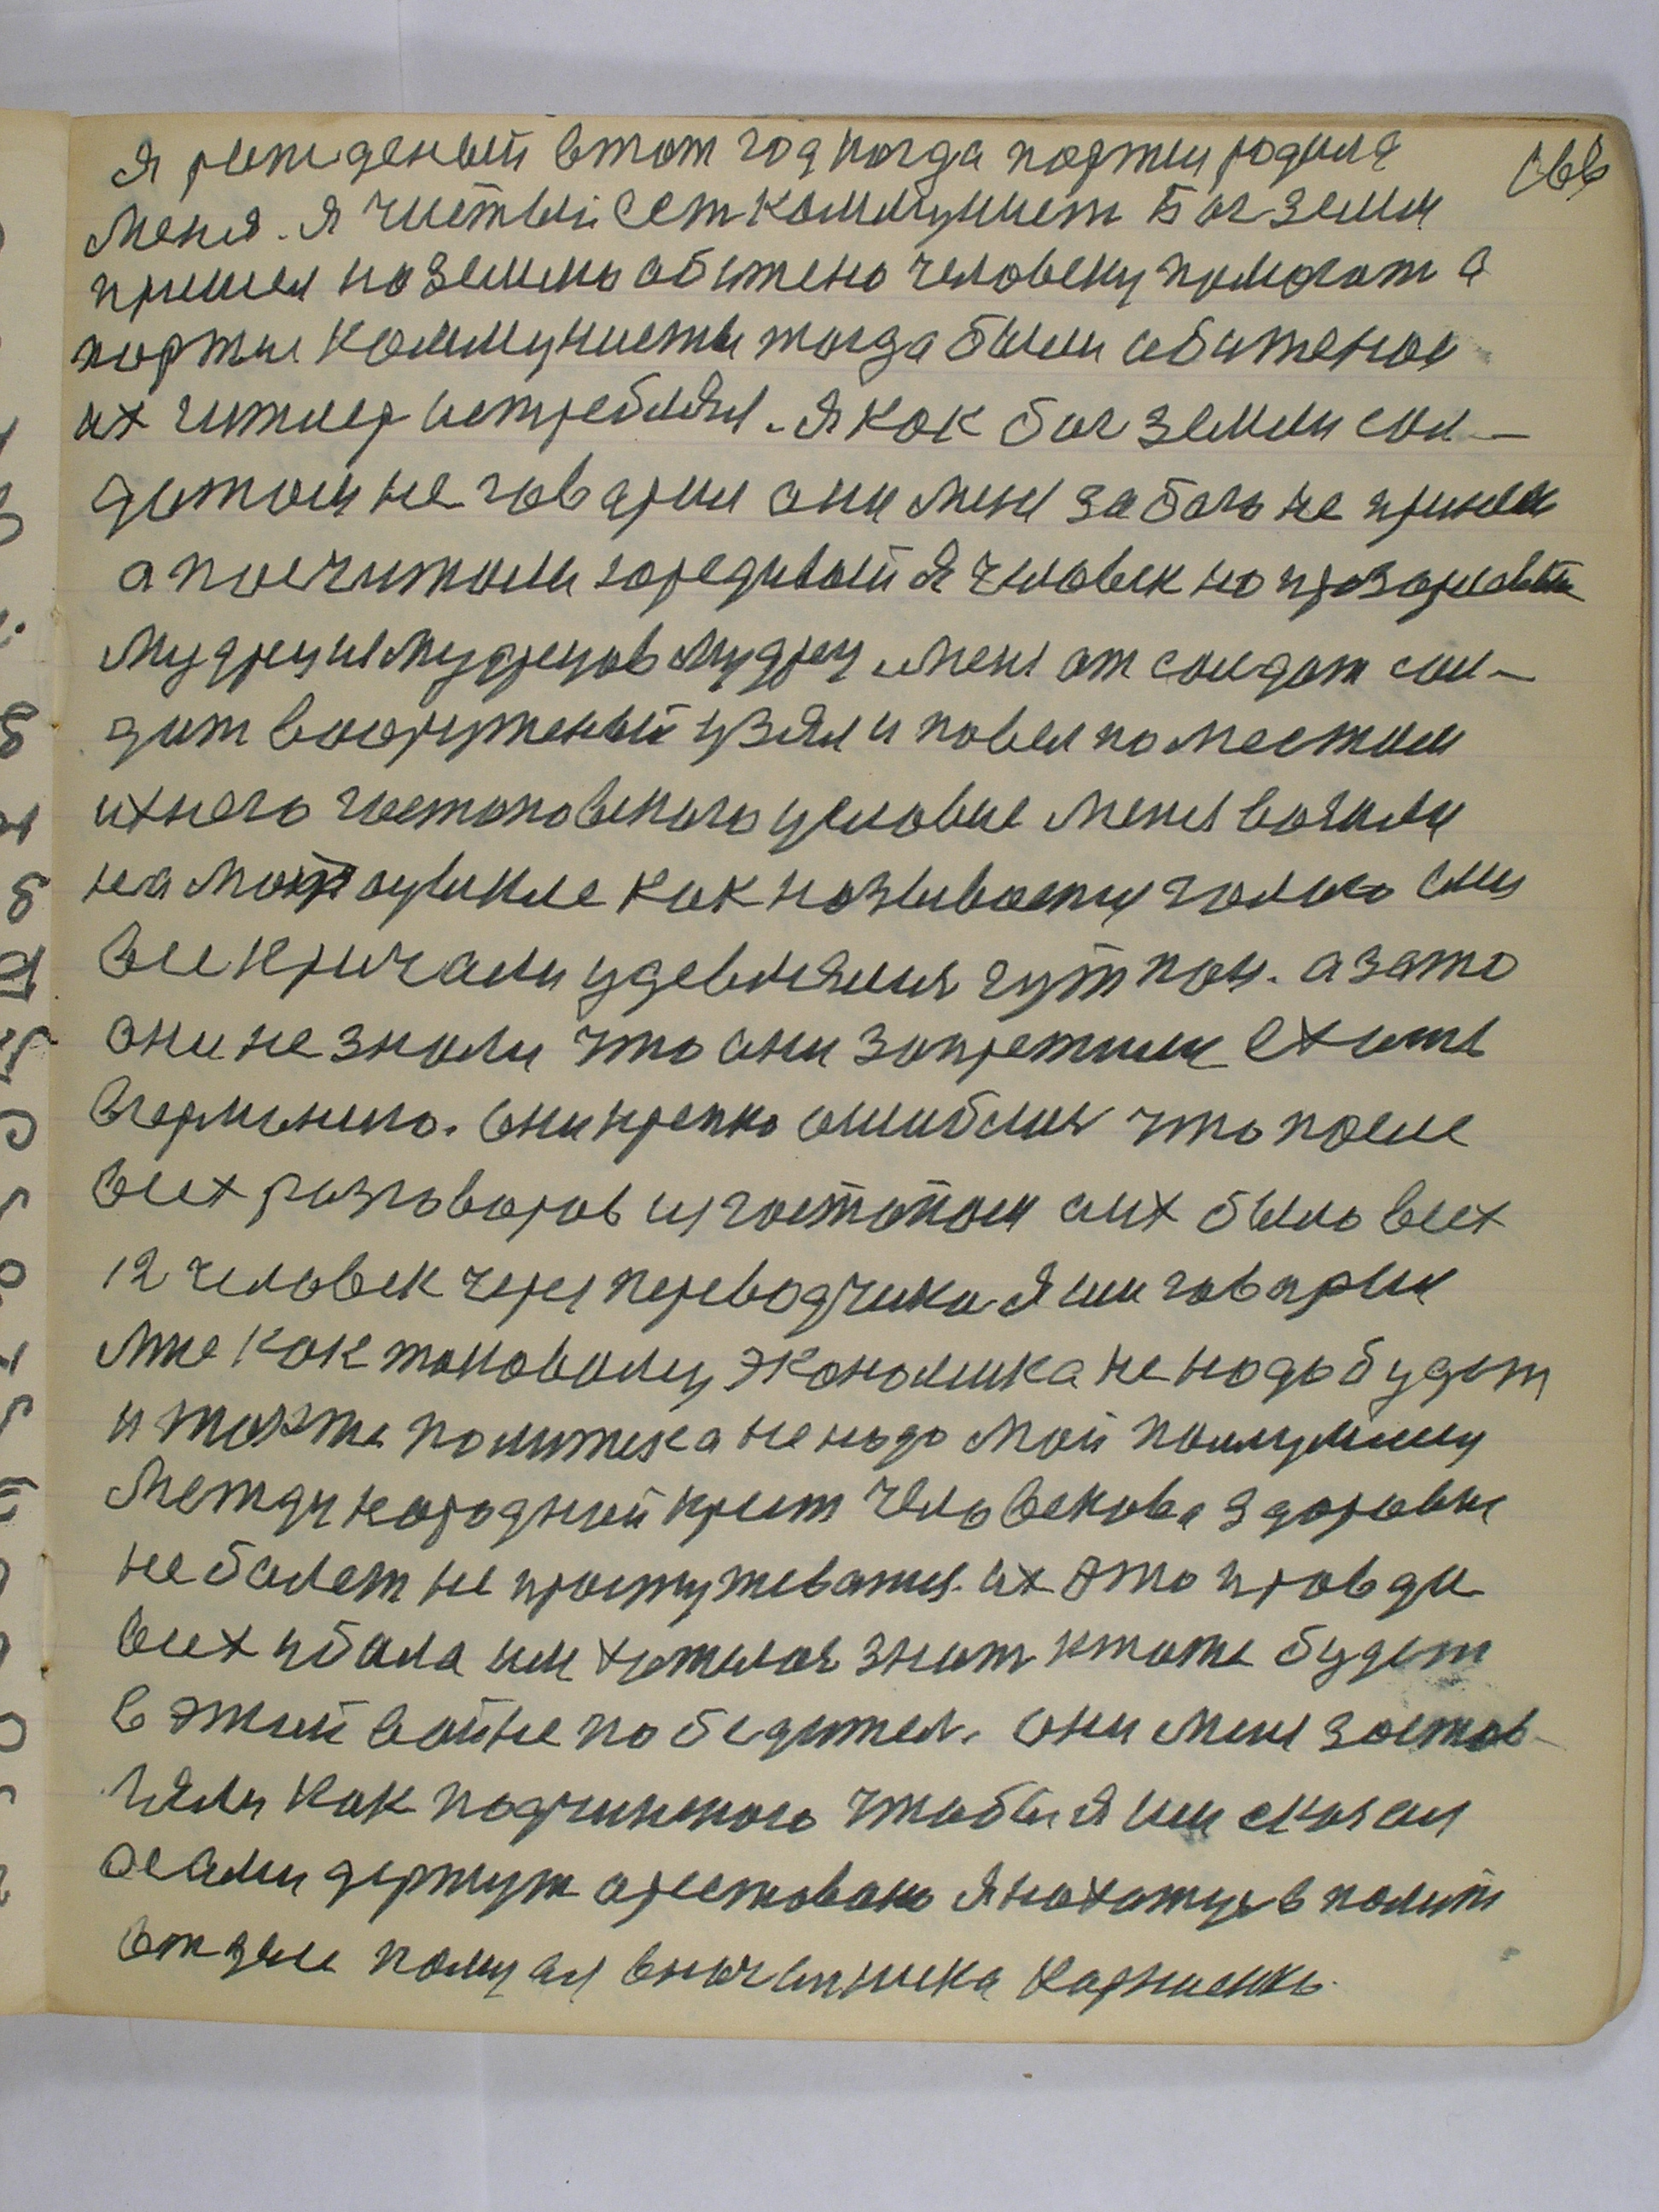 Я рожденый втот год когда портия родила
166
меня. Я чистый есть коммунист Бог земли
пришел на землю обижено человеку помогат а
портия коммунисты тогда были обиженои
их гитлер истреблял. Я как бог земли сол-
датом не говарил они мене за бога не приняли
а посчитали юредивый я человек но прозорливый
мудрец из мудрецов мудрец. мене от солдат сол-
дат вооруженый узял и повел по местам
ихнего гестаповского условие меня возили
на мотоцикле как называемц голого они
все кричали удевлялися гут пан. а зато
они не знали что они запретили ехать
вгерманию. они крепко ошиблися что после
всех разговоров из гостопом а их было всех
12 человек через переводчика я им говарил
мне как таковому экономика не надо будет
и также политека не надо мой помумому
международный крист человекова здоровье
не болет не простужеватся. их это правда
всех убила им хотелося знат хтоже будет
в этой войне победител. они мене застов-
ляли как подчинного чтобы я им сказал
осами держут арестовано я нахожуся в полит
отделе помуая вночаника Карниенко.